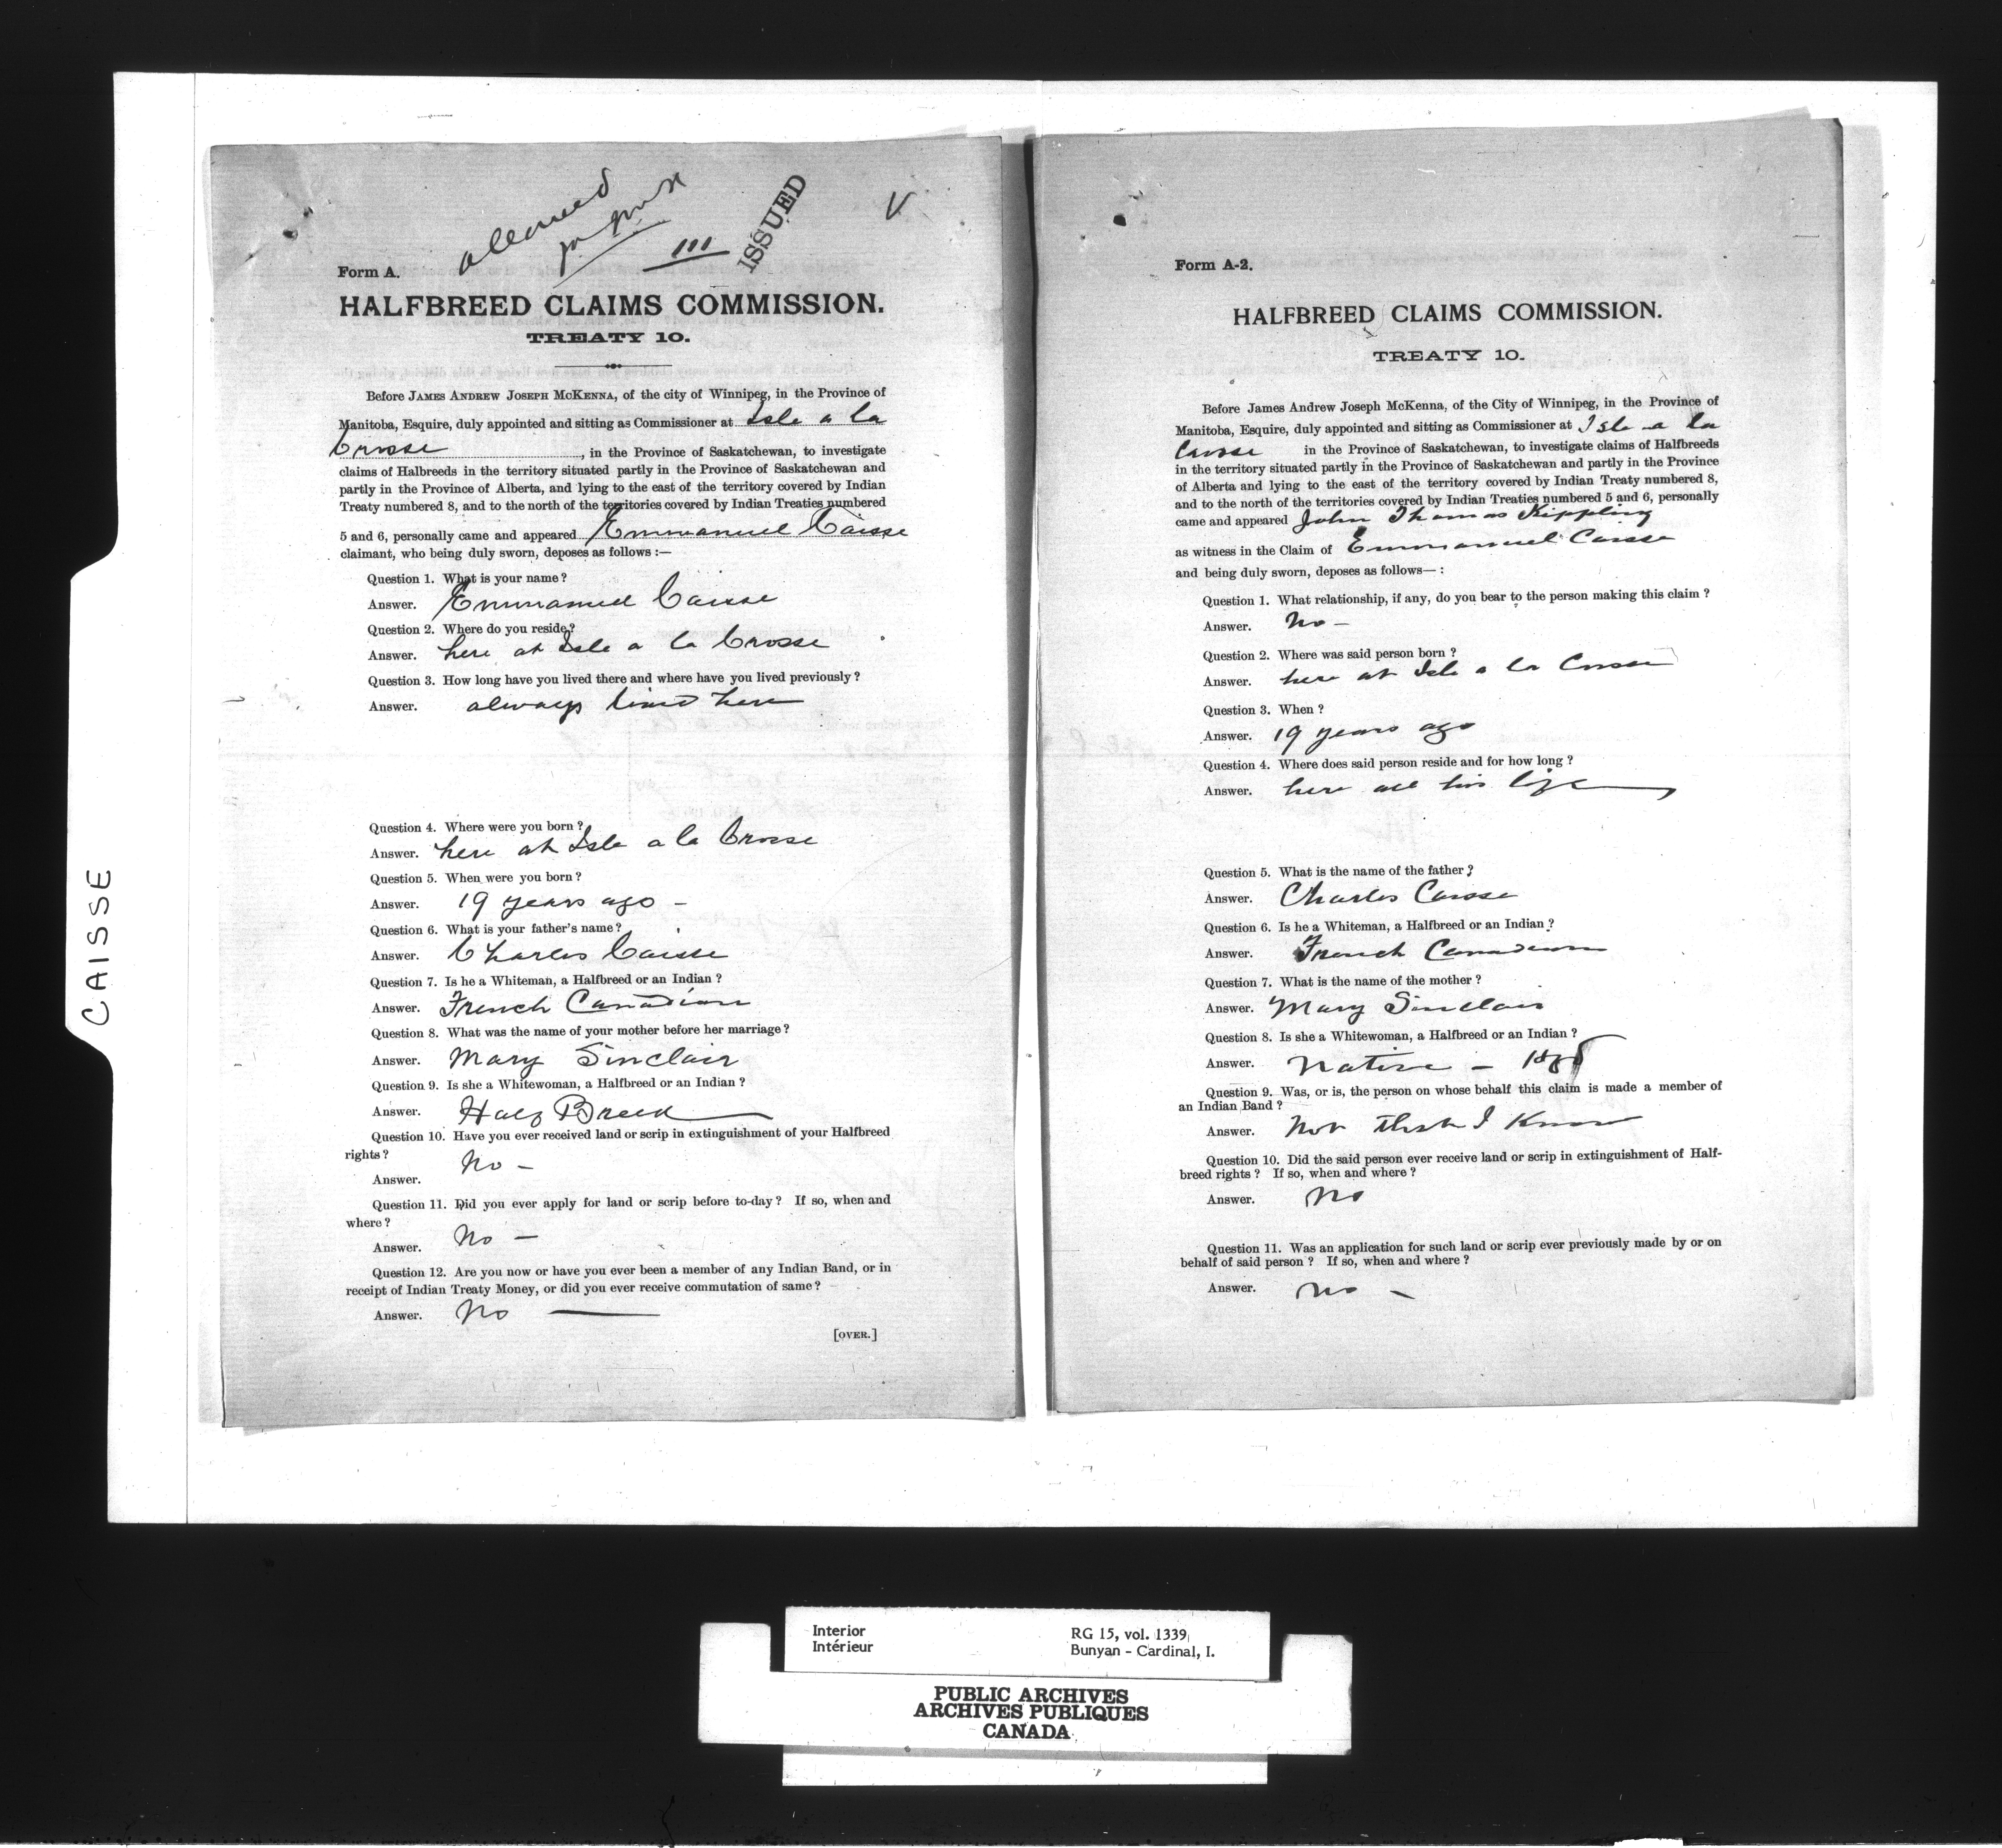 CAISSE
allowed
111
ISSUED
Form A.
HALFBREED CLAIMS COMMISSION.
TREATY 10.
Before JAMES ANDREW JOSEPH MCKENNA, of the city of Winnipeg, in the Province of
Manitoba, Esquire, duly appointed and sitting as Commissioner at Isle a la
Crosse, in the Province of Saskatchewan, to investigate
claims of Halbreeds in the territory situated partly in the Province of Saskatchewan and
partly in the Province of Alberta, and lying to the east of the territory covered by Indian
Treaty numbered 8, and to the north of the territories covered by Indian Treaties numbered
5 and 6, personally came and appeared Emmanuel Caisse
claimant, who being duly sworn, deposes as follows :—
Question 1. What is your name ?
Answer. Emmanuel Caisse
Question 2. Where do you reside ?
Answer. here at Isle a la Crosse
Question 3. How long have you lived there and where have you lived previously ?
Answer. always lived here
Question 4. Where were you born ?
Answer. here at Isle a la Crosse
Question 5. When were you born ?
Answer. 19 years ago –
Question 6. What is your father's name ?
Answer. Charles Caisse
Question 7. Is he a Whiteman, a Halfbreed or an Indian ?
Answer. French Canadian
Question 8. What was the name of your mother before her marriage ?
Answer. Mary Sinclair
Question 9. Is she a Whitewoman, a Halfbreed or an Indian ?
Answer. Half Breed
Question 10. Have you ever received land or scrip in extinguishment of your Halfbreed
rights ?
Answer. No –
Question 11. Did you ever apply for land or scrip before to-day ? If so, when and
where ?
Answer. No –
Question 12. Are you now or have you ever been a member of any Indian Band, or in
receipt of Indian Treaty Money, or did you ever receive commutation of same ?
Answer. No —
[OVER.]
Form A-2.
HALFBREED CLAIMS COMMISSION.
TREATY 10.
Before James Andrew Joseph McKenna, of the City of Winnipeg, in the Province of
Manitoba, Esquire, duly appointed and sitting as Commissioner at Isle a la
Crosse in the Province of Saskatchewan, to investigate claims of Halfbreeds
in the territory situated partly in the Province of Saskatchewan and partly in the Province
of Alberta and lying to the east of the territory covered by Indian Treaty numbered 8,
and to the north of the territories covered by Indian Treaties numbered 5 and 6, personally
came and appeared John Thomas Kippling
as witness in the Claim of Emmanuel Caisse
and being duly sworn, deposes as follows— :
Question 1. What relationship, if any, do you bear to the person making this claim ?
Answer. No –
Question 2. Where was said person born ?
Answer. here at Isle a la Crosse
Question 3. When ?
Answer. 19 years ago
Question 4. Where does said person reside and for how long ?
Answer. here all his life
Question 5. What is the name of the father ?
Answer. Charles Caisse
Question 6. Is he a Whiteman, a Halfbreed or an Indian ?
Answer. French Canadian
Question 7. What is the name of the mother ?
Answer. Mary Sinclair
Question 8. Is she a Whitewoman, a Halfbreed or an Indian ?
Answer. Native –
Question 9. Was, or is, the person on whose behalf this claim is made a member of
an Indian Band ?
Answer. Not that I Know
Question 10. Did the said person ever receive land or scrip in extinguishment of Half-
breed rights ? If so, when and where ?
Answer. No
Question 11. Was an application for such land or scrip ever previously made by or on
behalf of said person ? If so, when and where ?
Answer. No –
Interior
Intérieur
RG 15, vol. 1339
Bunyan - Cardinal, I.
PUBLIC ARCHIVES
ARCHIVES PUBLIQUES
CANADA